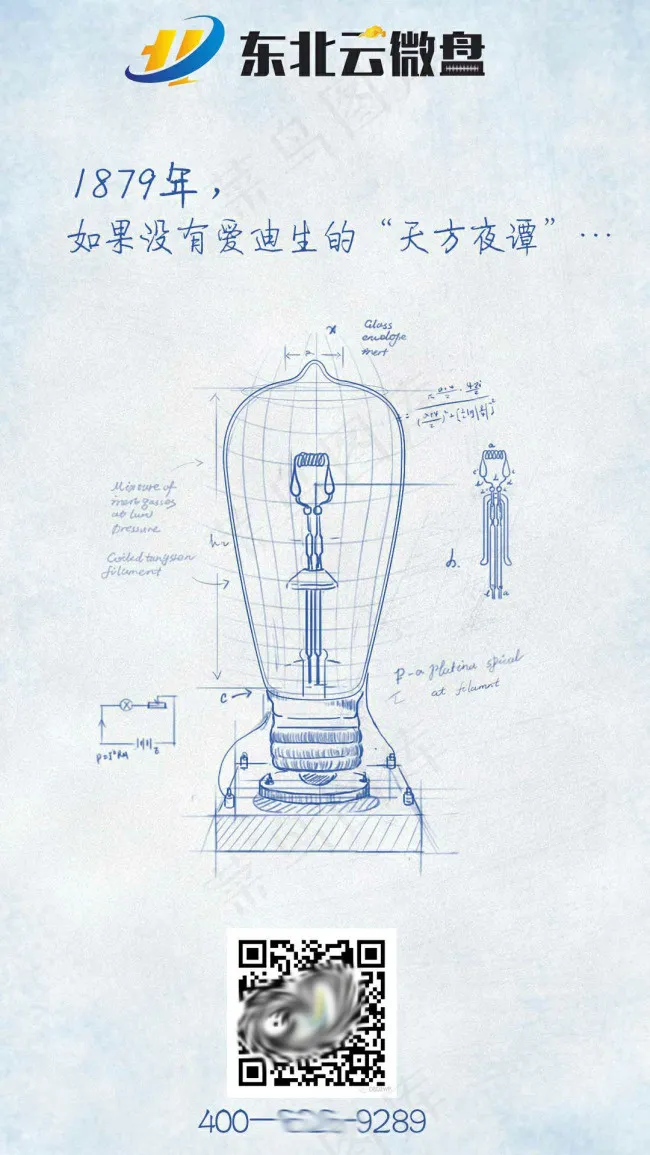 东北云微盘
1879年，
如果没有爱迪生的“天方夜谭”…
Glass
envelope
inert
Mixture of
inert gasses
at low
pressure
Coiled tungsten
filament
a
b.
c
P-a Platina spiral
at filamnt
400—9289